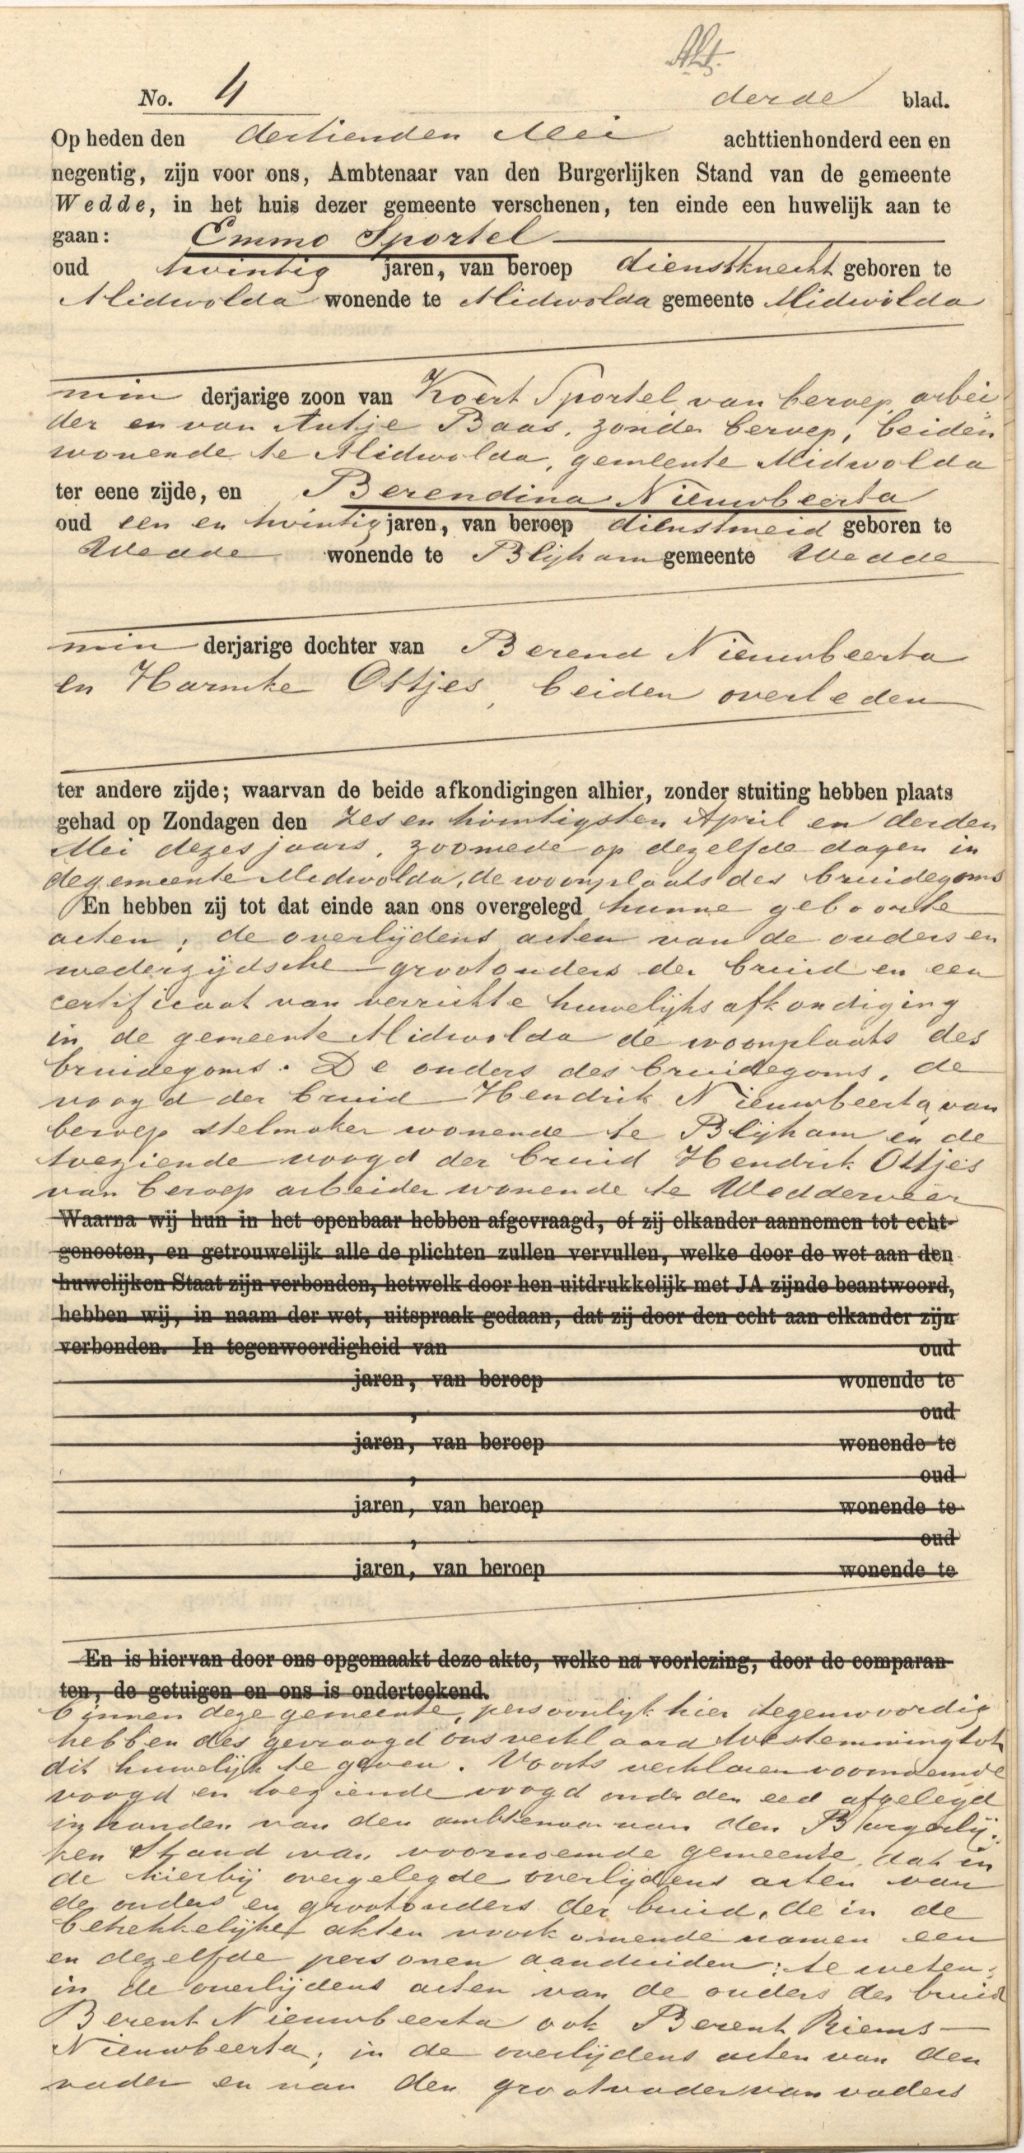 No. 4 derde blad.
Op heden den dertienden Mei achttienhonderd een en
negentig, zijn voor ons, Ambtenaar van den Burgerlijken Stand van de gemeente
Wedde, in het huis dezer gemeente verschenen, ten einde een huwelijk aan te
gaan: Emmo Sportel
oud twintig jaren, van beroep dienstknecht geboren te
Midwolda wonende te Midwolda gemeente Midwolda
min derjarige zoon van Koert Sportel van beroep arbei
der en van Antje Baas, zonder beroep, beiden
wonende te Midwolda, gemeente Midwolda
ter eene zijde, en Berendina Nieuwbeerta
oud een en twintig jaren, van beroep dienstmeid geboren te
Wedde wonende te Blijham gemeente Wedde
min derjarige dochter van Berend Nieuwbeerta
en Harmke Ottjes, beiden overleden
ter andere zijde; waarvan de beide afkondigingen alhier, zonder stuiting hebben plaats
gehad op Zondagen den Zes en twintigsten April en derden
Mei dezes jaars, zoomede op dezelfde dagen in
de gemeente Midwolda, de woonplaats des bruidegoms
En hebben zij tot dat einde aan ons overgelegd hunne geboorte
acten; de overlijdens acten van de ouders en
wederzijdsche grootouders der bruid en een
certificaat van verrichte huwelijks afkondiging
in de gemeente Midwolda de woonplaats des
bruidegoms. De ouders des bruidegoms, de
voogd der bruid Hendrik Nieuwbeerta van
beroep stelmaker wonende te Blijham en de
toeziende voogd der bruid Hendrik Ottjes
van beroep arbeider wonende te Wedderveer
Waarna wij hun in het openbaar hebben afgevraagd, of zij elkander aannemen tot echt-
genooten, en getrouwelijk alle de plichten zullen vervullen, welke door de wet aan den
huwelijken Staat zijn verbonden, hetwelk door hen uitdrukkelijk met JA zijnde beantwoord,
hebben wij, in naam der wet, uitspraak gedaan, dat zij door den echt aan elkander zijn
verbonden. In tegenwoordigheid van oud
jaren, van beroep wonende te
, oud
jaren, van beroep wonende te
, oud
jaren, van beroep wonende te
, oud
jaren, van beroep wonende te
En is hiervan door ons opgemaakt deze akte, welke na voorlezing, door de comparan-
ten, de getuigen en ons is onderteekend.
binnen deze gemeente, persoonlijk hier tegenwoordig
hebben des gevraagd ons verklaard toestemming tot
dit huwelijk te geven. Voorts verklaren voornoemde
voogd en toeziende voogd onder den eed afgelegd
in handen van den ambtenaar van den Burgerlij-
ken Stand van voornoemde gemeente, dat in
de hierbij overgelegde overlijdens acten van
de ouders en grootouders der bruid, de in de
betrekkelijke akten voorkomende namen een
en dezelfde personen aanduiden; te weten:
in de overlijdens acten van de ouders der bruid
Berent Nieuwbeerta ook Berent Riems
Nieuwbeerta; in de overlijdens acten van den
vader en van den grootvader van vaders